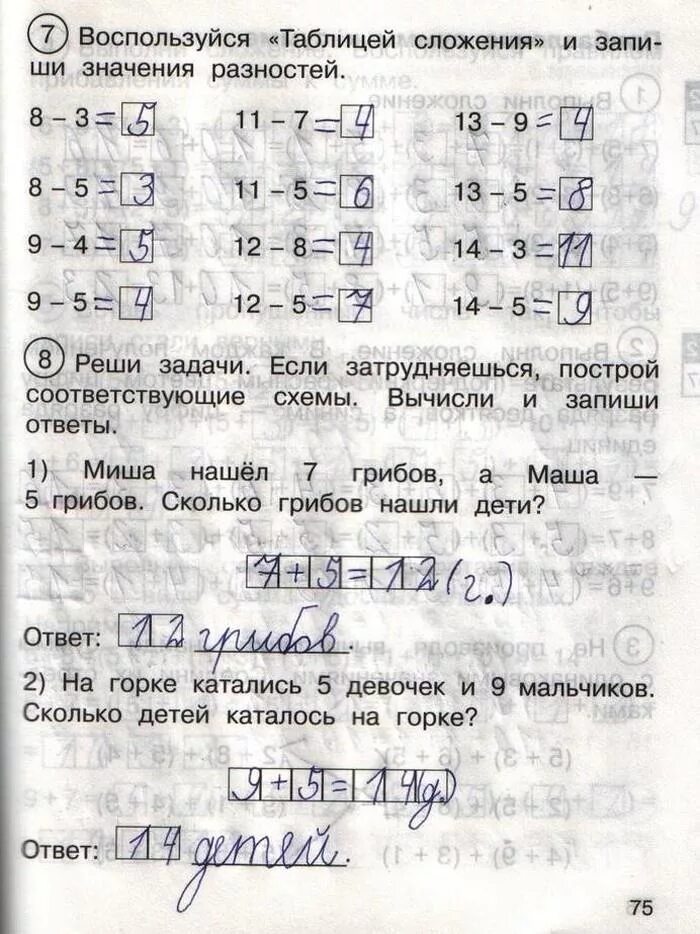 7 Воспользуйся «Таблицей сложения» и запи-
ши значения разностей.
8 – 3 = 5 11 – 7 = 4 13 – 9 = 4
8 – 5 = 3 11 – 5 = 6 13 – 5 = 8
9 – 4 = 5 12 – 8 = 4 14 – 3 = 11
9 – 5 = 4 12 – 5 = 7 14 – 5 = 9
8 Реши задачи. Если затрудняешься, построй
соответствующие схемы. Вычисли и запиши
ответы.
1) Миша нашёл 7 грибов, а Маша —
5 грибов. Сколько грибов нашли дети?
7 + 5 = 12 (г.)
Ответ: 12 грибов.
2) На горке катались 5 девочек и 9 мальчиков.
Сколько детей каталось на горке?
9 + 5 = 14 (д.)
Ответ: 14 детей.
75